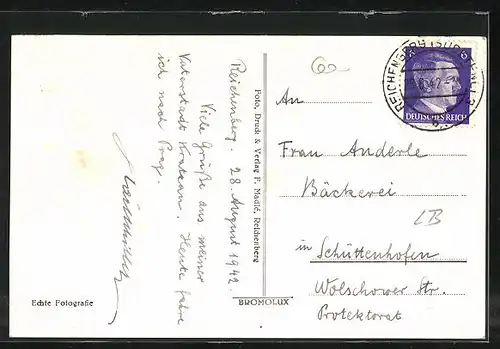 Reichenberg, 28. August 1942.
Viele Grüße aus meiner
Vaterstadt Kratzau. Heute fahre
ich nach Prag.
Echte Fotografie
Foto, Druck & Verlag F. Madlé, Reichenberg
BROMOLUX
REICHENBERG (SUDETENL) 2
6
DEUTSCHES REICH
An
Frau Anderle
Bäckerei
LB
in Schüttenhofen
Wolschower Str.
Protektorat